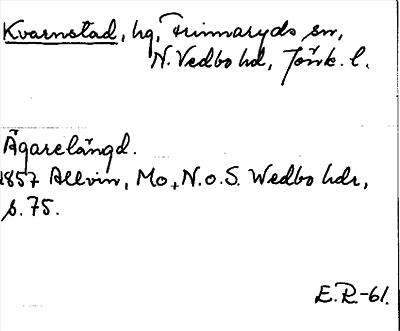 Kvarnstad, hg, Frinnaryds sn,
N. Vedbo hd, Jönk. l.
Ägarelängd.
1857 Allvin, Mo, N. o. S. Wedbo hdr,
s. 75.
E.R.-61.